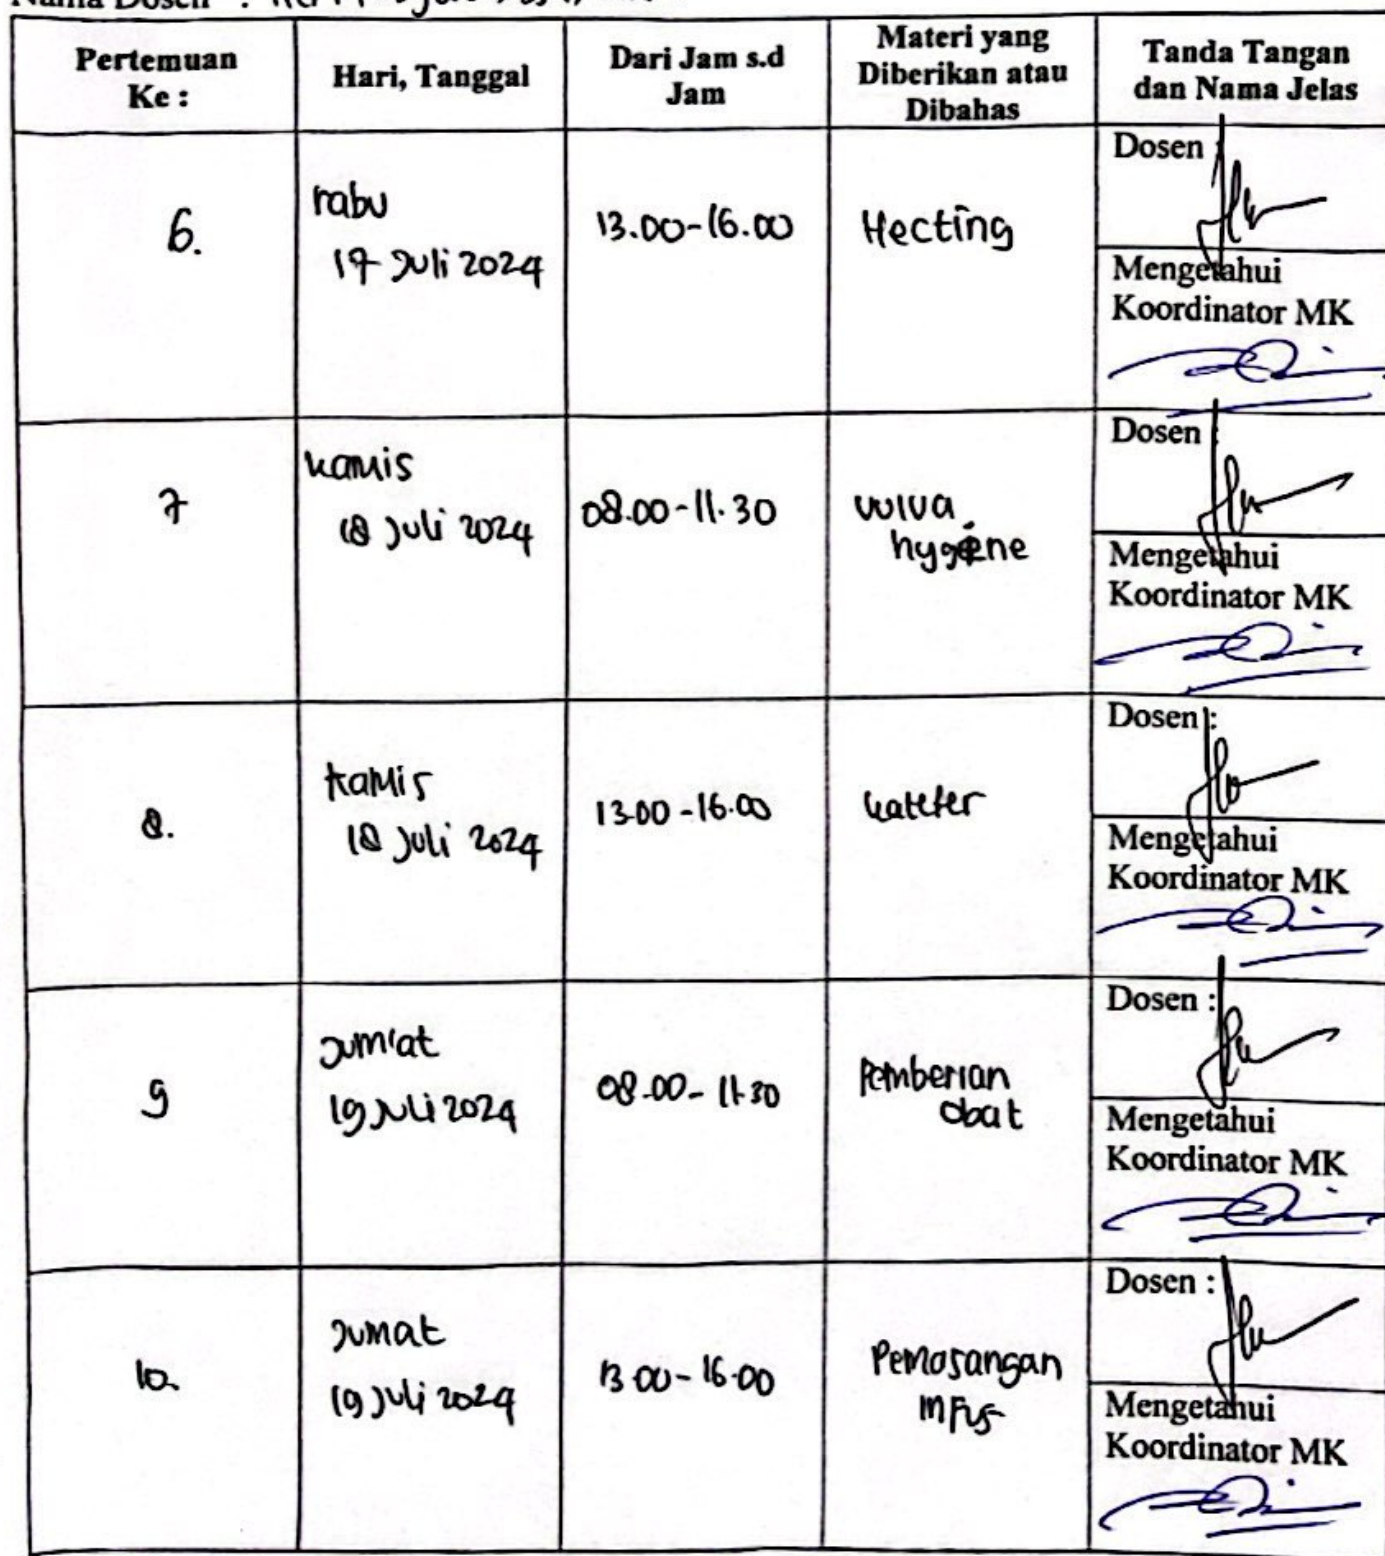 Nama Dosen :
Pertemuan
Ke :
Hari, Tanggal
Dari Jam s.d
Jam
Materi yang
Diberikan atau
Dibahas
Tanda Tangan
dan Nama Jelas
6.
rabu
17 Juli 2024
13.00-16.00
Hecting
Dosen :
Mengetahui
Koordinator MK
7
kamis
18 Juli 2024
08.00-11.30
vulva
hygiene
Dosen
Mengetahui
Koordinator MK
8.
kamis
18 Juli 2024
13.00-16.00
kateter
Dosen :
Mengetahui
Koordinator MK
9
Jum'at
19 Juli 2024
08.00-11.30
Pemberian
obat
Dosen :
Mengetahui
Koordinator MK
10.
Jumat
19 Juli 2024
13.00-16.00
Pemasangan
infus
Dosen :
Mengetahui
Koordinator MK